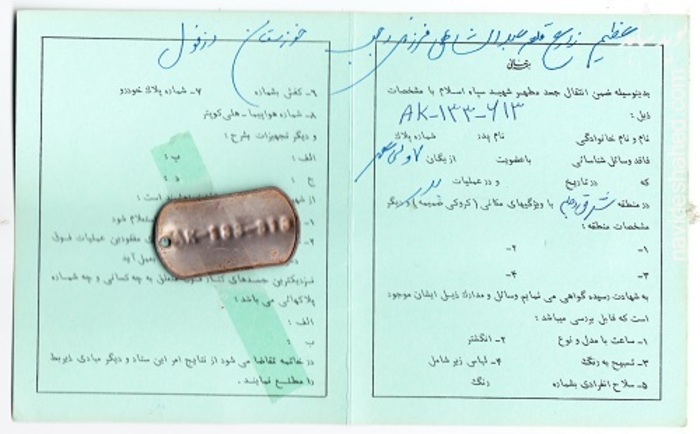 عظیم زارع قلعه عبدالشاطی فرزند رجب خوزستان دزفول
بدینوسیله ضمن انتقال جسد مطهر شهید سپاه اسلام با مشخصات
ذیل : AK-133-613
نام و نام خانوادگی نام پدر شماره پلاک
فاقد وسائل شناسائی باعضویت ازیگان
که در تاریخ و در عملیات
در منطقه شرق دجله با ویژگیهای مکانی ( کروکی ضمیمه ) و دیگر
مشخصات منطقه :
۱- ۲-
۳- ۴-
به شهادت رسیده گواهی می نمایم وسائل و مدارک ذیل ایشان موجود
است که قابل بررسی میباشد :
۱- ساعت با مدل و نوع ۲- انگشتر
۳- تسبیح به رنگ ۴- لباس زیر شامل
۵- سلاح انفرادی بشماره رنگ
۶- کفش بشماره ۷- شماره پلاک خودرو
۸- شماره هواپیما - هلی کوپتر
و دیگر تجهیزات بشرح :
الف : ب :
ج : د :
از شهدا است :
۱- استعلام شود
۲- مفقودین عملیات فوق
بعمل آید
نزدیکترین جسدهای کنار به چه کسانی و چه شماره
پلاکهائی می باشد :
الف :
ب :
در خاتمه تقاضا می شود از نتایج امر این ستاد و دیگر مبادی ذیربط
را مطلع نمایند .
AK-133-613
navideshahed.com